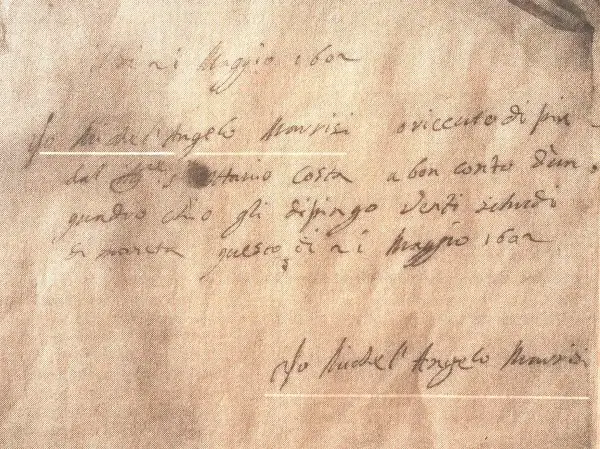 21 Maggio 1602
Io Michel'Angelo Marrisi o riceuto di piu
dal Ill.re s. Ottavio Costa a bon conto d'un
quadro ch'io gli dipingo venti schudi
di moneta questo di 21 Maggio 1602
Io Michel'Angelo Marrisi